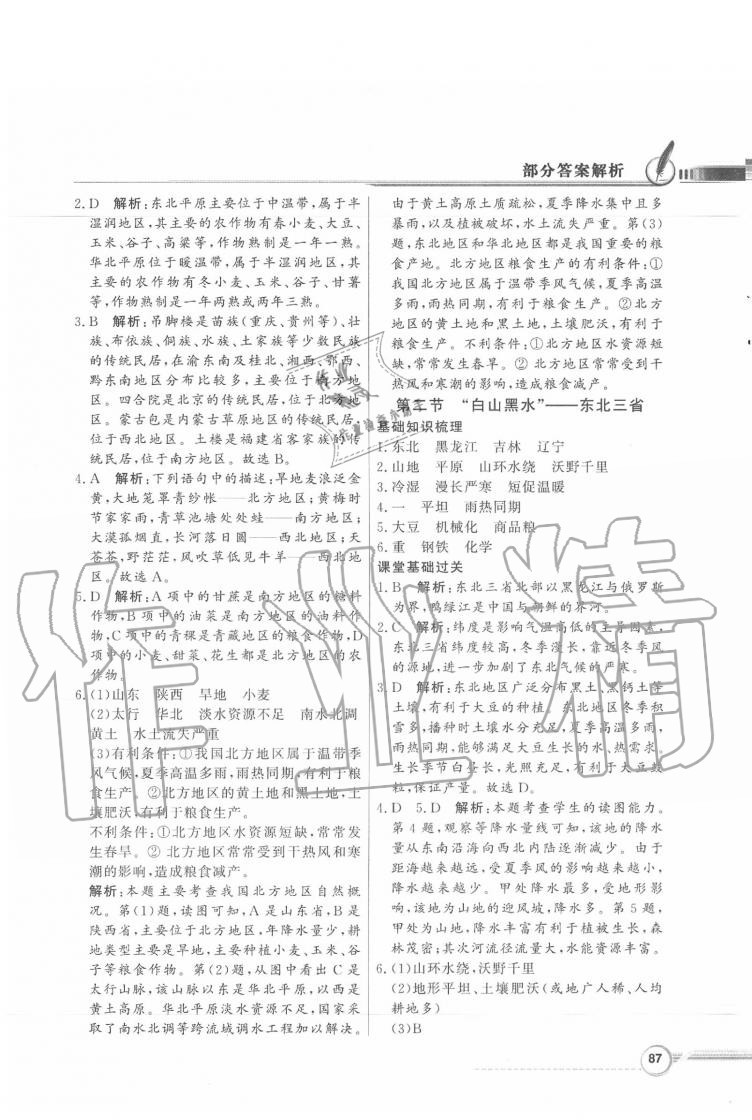 部分答案解析
2. D　解析:东北平原主要位于中温带,属于半
湿润地区,其主要的农作物有春小麦、大豆、
玉米、谷子、高粱等,作物熟制是一年一熟。
华北平原位于暖温带,属于半湿润地区,其
主要的农作物有冬小麦、玉米、谷子、甘薯
等,作物熟制是一年两熟或两年三熟。
3. B　解析:吊脚楼是苗族(重庆、贵州等)、壮
族、布依族、侗族、水族、土家族等少数民族
的传统民居,在渝东南及桂北、湘西、鄂西、
黔东南地区分布比较多,主要位于南方地
区。四合院是北京的传统民居,位于北方地
区。蒙古包是内蒙古草原地区的传统民居,
位于西北地区。土楼是福建省客家民居的
传统民居,位于南方地区。故选B。
4. A　解析:下列语句中的描述:旱地麦浪泛金
黄,大地笼罩青纱帐——北方地区;黄梅时
节家家雨,青草池塘处处蛙——南方地区;
大漠孤烟直,长河落日圆——西北地区;天
苍苍,野茫茫,风吹草低见牛羊——西北地
区。故选A。
5. D　解析:A项中的甘蔗是南方地区的糖料
作物,B项中的油菜是南方地区的油料作
物,C项中的青稞是青藏地区的粮食作物,D
项中的小麦、甜菜、花生都是北方地区的农
作物。
6. (1)山东　陕西　旱地　小麦
(2)太行　华北　淡水资源不足　南水北调
黄土　水土流失严重
(3)有利条件:①我国北方地区属于温带季
风气候,夏季高温多雨,雨热同期,有利于粮
食生产。②北方地区的黄土地和黑土地,土
壤肥沃,有利于粮食生产。
不利条件:①北方地区水资源短缺,常常发
生春旱。②北方地区常常受到干热风和寒
潮的影响,造成粮食减产。
解析:本题主要考查我国北方地区自然概
况。第(1)题,读图可知,A是山东省,B是
陕西省,主要位于北方地区,年降水量少,耕
地类型主要是旱地,主要种植小麦、玉米、谷
子等粮食作物。第(2)题,从图中看出C是
太行山脉,该山脉以东是华北平原,以西是
黄土高原。华北平原淡水资源不足,国家采
取了南水北调等跨流域调水工程加以解决。
由于黄土高原土质疏松,夏季降水集中且多
暴雨,以及植被破坏,水土流失严重。第(3)
题,东北地区和华北地区都是我国重要的粮
食产地。北方地区粮食生产的有利条件:①
我国北方地区属于温带季风气候,夏季高温
多雨,雨热同期,有利于粮食生产。②北方
地区的黄土地和黑土地,土壤肥沃,有利于
粮食生产。不利条件:①北方地区水资源短
缺,常常发生春旱。②北方地区常常受到干
热风和寒潮的影响,造成粮食减产。
第二节　“白山黑水”——东北三省
基础知识梳理
1. 东北　黑龙江　吉林　辽宁
2. 山地　平原　山环水绕　沃野千里
3. 冷湿　漫长严寒　短促温暖
4. 一　平坦　雨热同期
5. 大豆　机械化　商品粮
6. 重　钢铁　化学
课堂基础过关
1. B　解析:东北三省北部以黑龙江与俄罗斯
为界,鸭绿江是中国与朝鲜的界河。
2. C　解析:纬度是影响气温高低的主导因素,
东北三省纬度高,冬季漫长、靠近冬季风
的源地,进一步加剧了东北气候的严寒。
3. D　解析:东北地区广泛分布黑土、黑钙土等
土壤,有利于大豆的种植。东北地区冬季积
雪多,播种时土壤水分充足,夏季高温多雨,
雨热同期,能够满足大豆生长的水、热需求。
生长季节白昼长,光照充足,有利于大豆数
粒,保证产量。故选D。
4. D　5. D　解析:本题考查学生的读图能力。
第4题,观察等降水量线可知,该地的降水
量从东南沿海向西北内陆逐渐减少。由于
距海越来越远,受夏季风的影响越来越小,
降水越来越少。甲处降水最多,受地形影
响,该地为山地的迎风坡,降水多。第5题,
甲处为山地,自然植被主要是森林生长,森
林茂密;其次河流径流量大,水能资源丰富。
6. (1)山环水绕,沃野千里
(2)地形平坦、土壤肥沃(或地广人稀、人均
耕地多)
(3)B
87
作业精